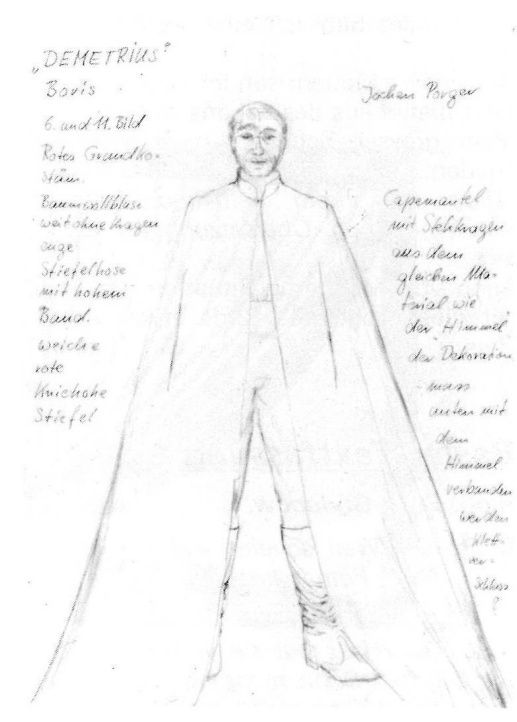 „DEMETRIUS“
Boris
6. und 11. Bild
Rotes Grundko-
stüm.
Baumwollbluse
weit ohne Kragen
enge
Stiefelhose
mit hohem
Band.
weiche
rote
Kniehohe
Stiefel
Jochen Porger
Capemantel
mit Stehkragen
aus dem
gleichen Ma-
terial wie
der "Himmel"
der Dekoration
- muss
unten mit
dem
Himmel
verbunden
werden
Klett-
ver-
schluss
?